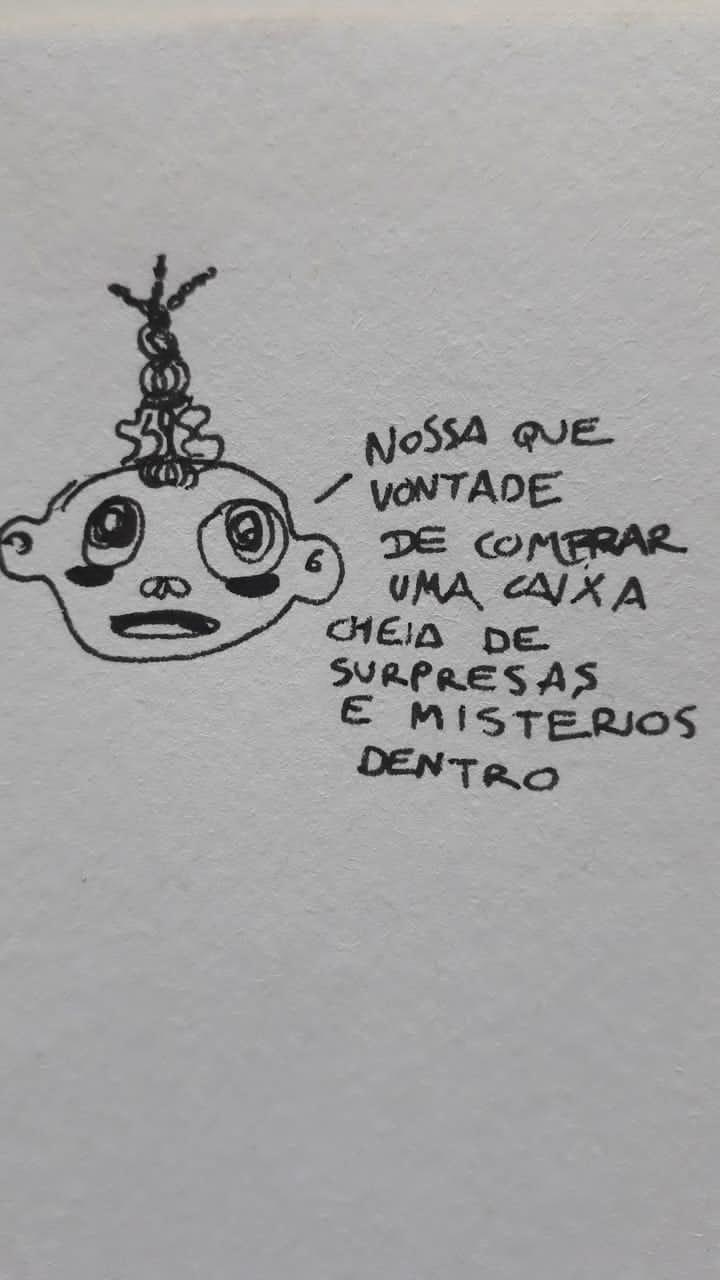 NOSSA QUE
VONTADE
DE COMPRAR
UMA CAIXA
CHEIA DE
SURPRESAS
E MISTERIOS
DENTRO